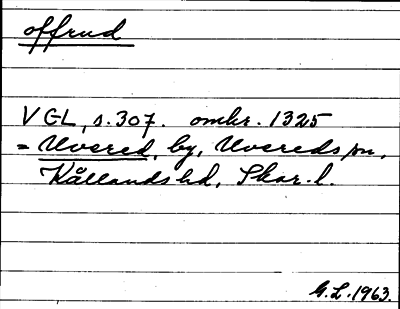 offrud
VGL, s. 307. omkr. 1325
= Uvered, by, Uvereds sn,
Kållands hd, Skar. l.
G.L. 1963.